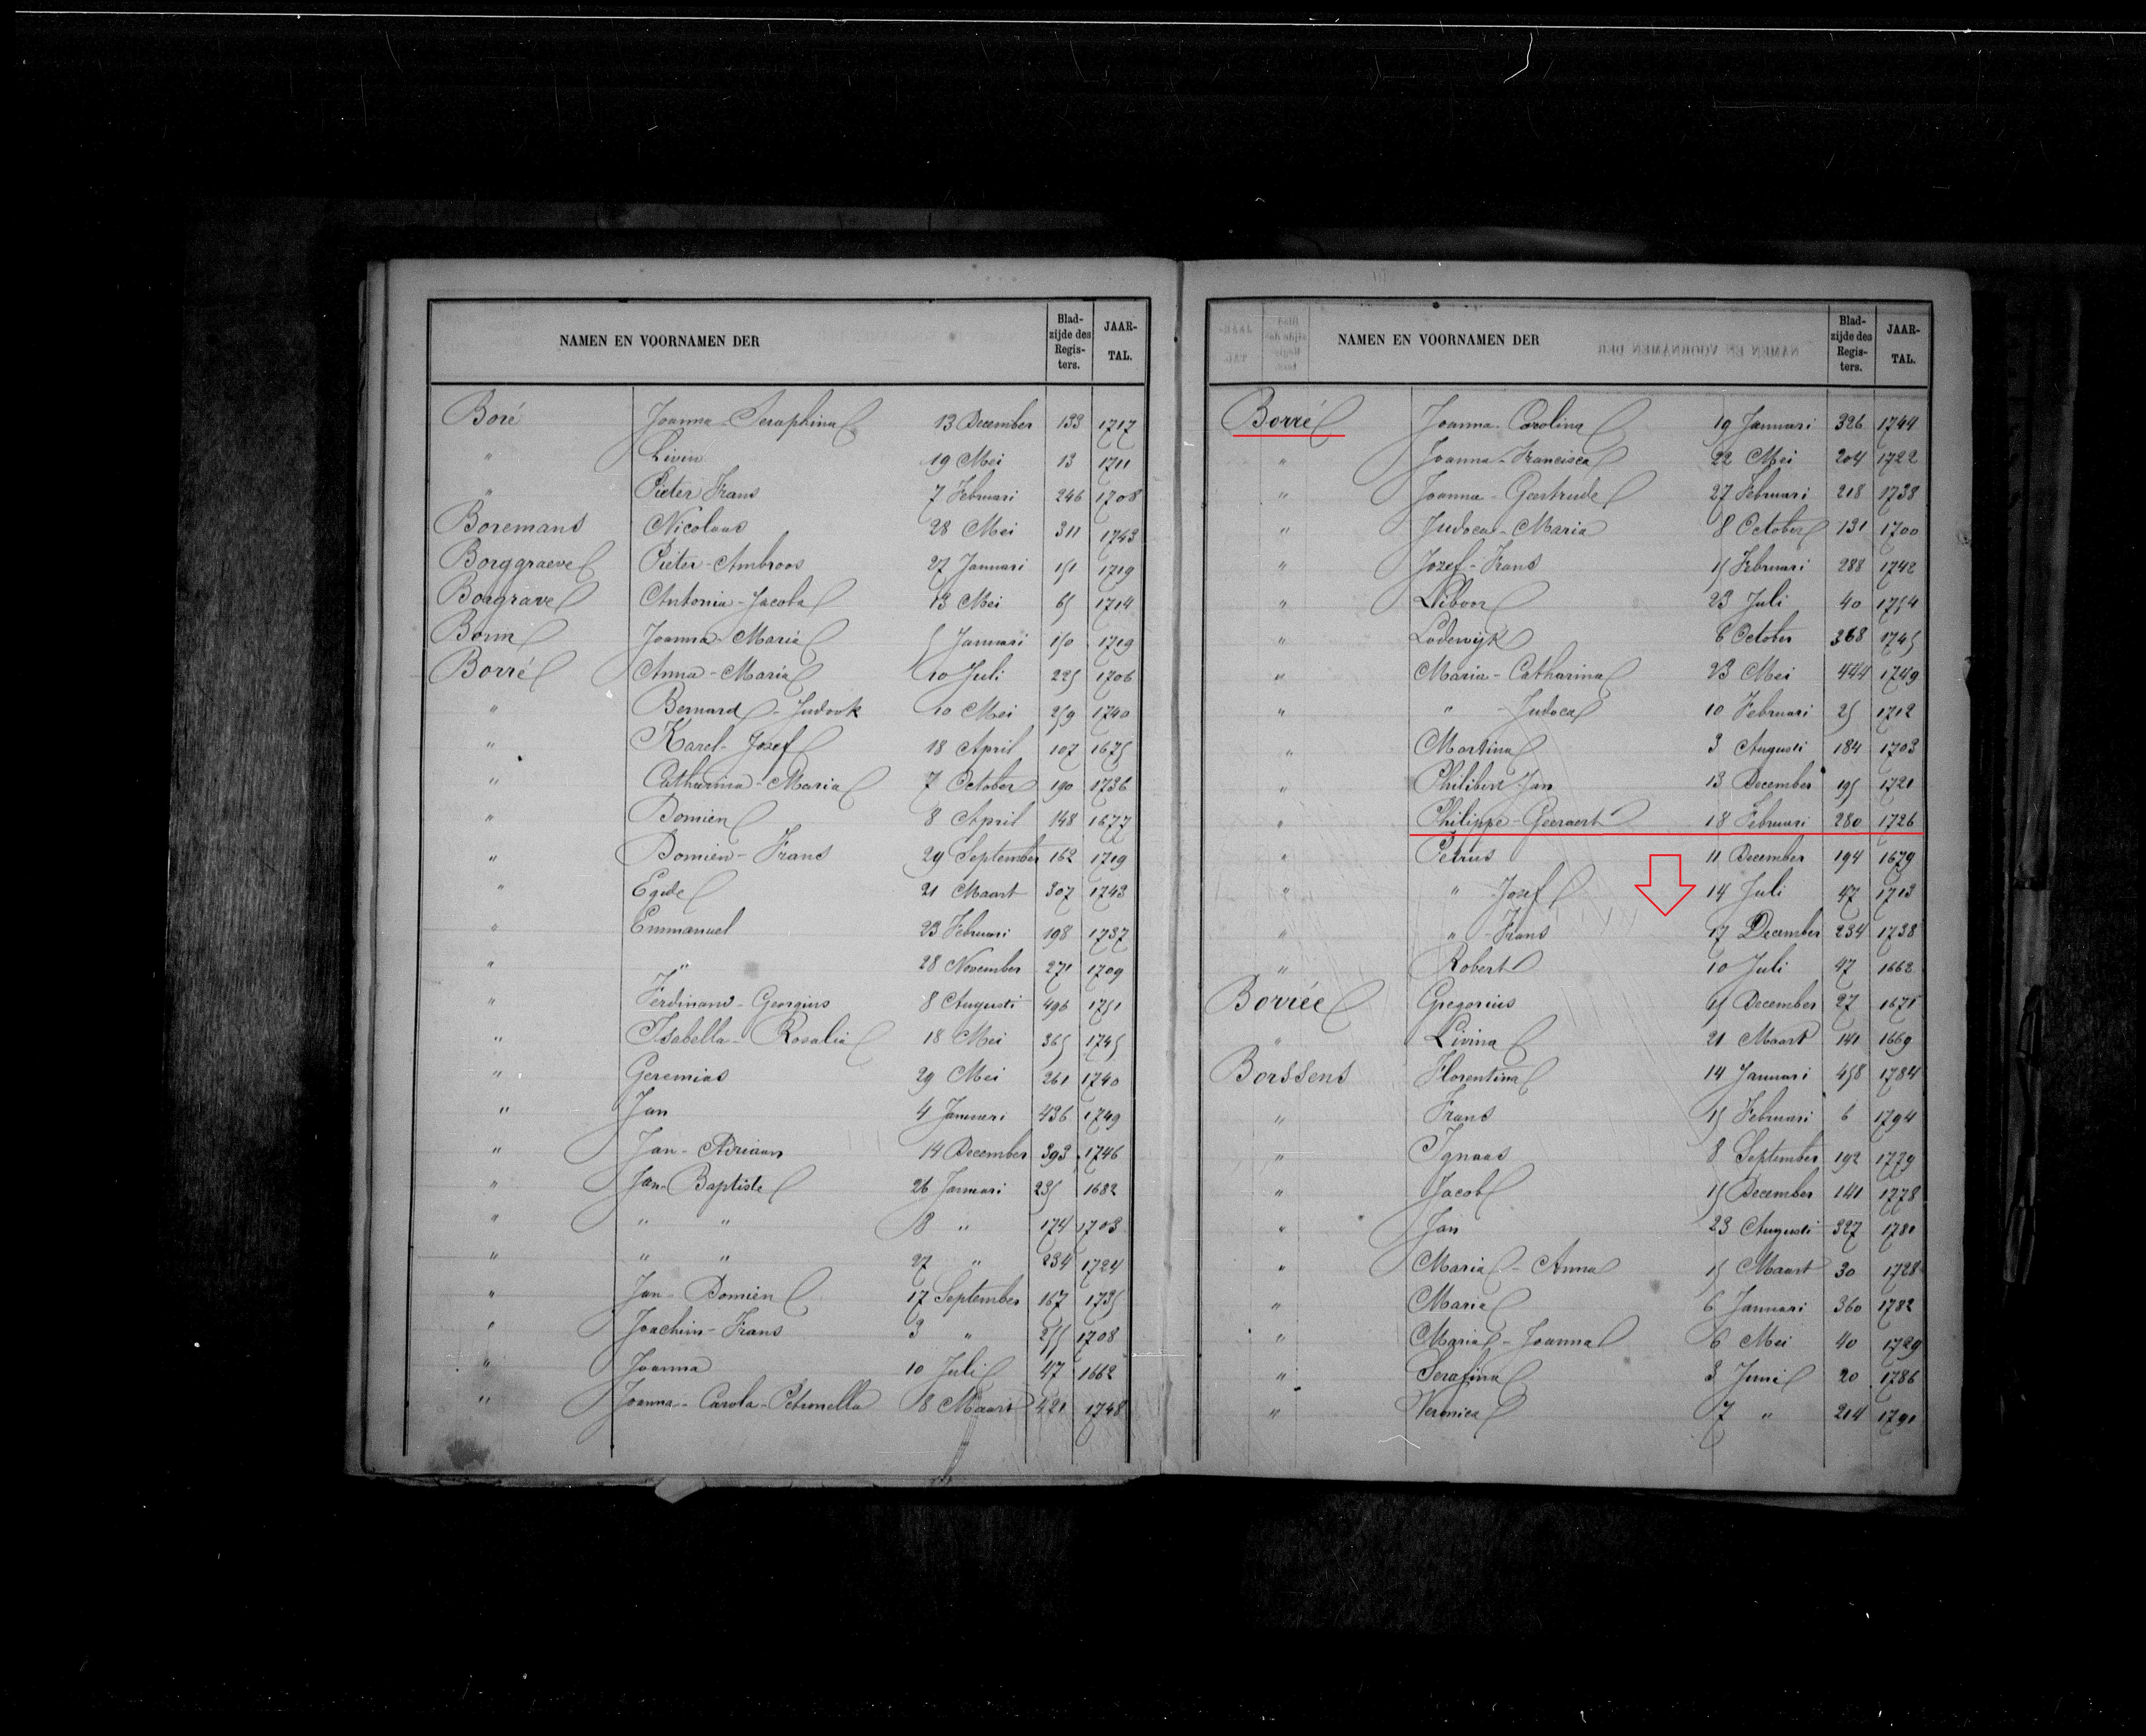 NAMEN EN VOORNAMEN DER Bladzijde des Registers. JAARTAL.
Boré Joanna-Seraphina 13 December 133 1717
" Livin 19 Mei 13 1711
" Pieter Frans 7 Februari 246 1708
Boremans Nicolaas 28 Mei 311 1743
Borggraeve Pieter-Ambroos 27 Januari 151 1719
Borgrave Antonia-Jacoba 13 Mei 65 1714
Joanna-Maria 5 Januari 150 1719
Borré Anna-Maria 10 Juli 225 1706
" Bernard-Judook 10 Mei 259 1740
" Karel-Josef 18 April 107 1675
" Catharina-Maria 7 October 190 1736
" Domien 8 April 148 1677
" Domien-Frans 29 September 162 1719
" Egide 21 Maart 307 1743
" Emmanuel 23 Februari 198 1737
" " 28 November 271 1709
" Ferdinand-Georgius 8 Augusti 496 1751
" Isabella-Rosalia 18 Mei 365 1745
" Geremias 29 Mei 261 1740
" Jan 4 Januari 436 1749
" Jan-Adriaan 14 December 393 1746
" Jan-Baptiste 26 Januari 235 1682
" " " 8 " 174 1703
" " " 27 " 234 1724
" Jan-Domien 17 September 167 1735
" Joachim-Frans 3 " 255 1708
" Joanna 10 Juli 47 1662
" Joanna-Carola-Petronella 8 Maart 421 1748
NAMEN EN VOORNAMEN DER Bladzijde des Registers. JAARTAL.
Borré Joanna-Carolina 19 Januari 326 1744
" Joanna-Francisca 22 Mei 204 1722
" Joanna-Geertrude 27 Februari 218 1738
" Judoca-Maria 8 October 131 1700
" Jozef-Frans 15 Februari 288 1742
" Liboor 23 Juli 40 1754
" Lodewijk 6 October 368 1745
" Maria-Catharina 23 Mei 444 1749
" " -Judoca 10 Februari 25 1712
" Martina 3 Augusti 184 1703
" Philibert-Jan 13 December 195 1721
" Philippe-Geeraert 18 Februari 280 1726
" Petrus 11 December 194 1679
" " -Josef 14 Juli 47 1713
" " -Frans 17 December 234 1738
" Robert 10 Juli 47 1662
Borrée Gregorius 15 December 27 1671
" Livina 21 Maart 141 1669
Borssens Florentina 14 Januari 458 1784
" Frans 15 Februari 6 1794
" Ignaas 8 September 192 1779
" Jacob 15 December 141 1778
" Jan 23 Augusti 327 1781
" Maria-Anna 15 Maart 30 1728
" Maria 6 Januari 360 1782
" Maria-Joanna 6 Mei 40 1729
" Serafina 3 Juni 20 1786
" Veronica 7 " 214 1791